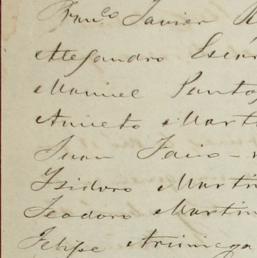 Franco Javier
Alejandro
Manuel Pantoj
Aniceto Marti
Juan
Ysidoro Martin
Teodoro Martin
Felipe Arsiniega